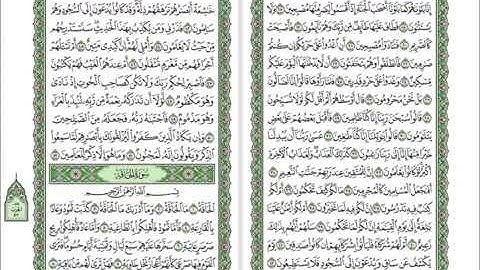 إِنَّا بَلَوْنَٰهُمْ كَمَا بَلَوْنَآ أَصْحَٰبَ ٱلْجَنَّةِ إِذْ أَقْسَمُوا۟ لَيَصْرِمُنَّهَا مُصْبِحِينَ ١٧ وَلَا
يَسْتَثْنُونَ ١٨ فَطَافَ عَلَيْهَا طَآئِفٌ مِّن رَّبِّكَ وَهُمْ نَآئِمُونَ ١٩ فَأَصْبَحَتْ
كَٱلصَّرِيمِ ٢٠ فَتَنَادَوْا۟ مُصْبِحِينَ ٢١ أَنِ ٱغْدُوا۟ عَلَىٰ حَرْثِكُمْ إِن كُنتُمْ
صَٰرِمِينَ ٢٢ فَٱنطَلَقُوا۟ وَهُمْ يَتَخَٰفَتُونَ ٢٣ أَن لَّا يَدْخُلَنَّهَا ٱلْيَوْمَ عَلَيْكُم
مِّسْكِينٌ ٢٤ وَغَدَوْا۟ عَلَىٰ حَرْدٍ قَٰدِرِينَ ٢٥ فَلَمَّا رَأَوْهَا قَالُوٓا۟ إِنَّا لَضَآلُّونَ ٢٦
بَلْ نَحْنُ مَحْرُومُونَ ٢٧ قَالَ أَوْسَطُهُمْ أَلَمْ أَقُل لَّكُمْ لَوْلَا تُسَبِّحُونَ ٢٨
قَالُوا۟ سُبْحَٰنَ رَبِّنَآ إِنَّا كُنَّا ظَٰلِمِينَ ٢٩ فَأَقْبَلَ بَعْضُهُمْ عَلَىٰ بَعْضٍ
يَتَلَٰوَمُونَ ٣٠ قَالُوا۟ يَٰوَيْلَنَآ إِنَّا كُنَّا طَٰغِينَ ٣١ عَسَىٰ رَبُّنَآ أَن يُبْدِلَنَا
خَيْرًا مِّنْهَآ إِنَّآ إِلَىٰ رَبِّنَا رَٰغِبُونَ ٣٢ كَذَٰلِكَ ٱلْعَذَابُ وَلَعَذَابُ ٱلْءَاخِرَةِ
أَكْبَرُ لَوْ كَانُوا۟ يَعْلَمُونَ ٣٣ إِنَّ لِلْمُتَّقِينَ عِندَ رَبِّهِمْ جَنَّٰتِ ٱلنَّعِيمِ ٣٤
أَفَنَجْعَلُ ٱلْمُسْلِمِينَ كَٱلْمُجْرِمِينَ ٣٥ مَا لَكُمْ كَيْفَ تَحْكُمُونَ ٣٦ أَمْ لَكُمْ
كِتَٰبٌ فِيهِ تَدْرُسُونَ ٣٧ إِنَّ لَكُمْ فِيهِ لَمَا تَخَيَّرُونَ ٣٨ أَمْ لَكُمْ أَيْمَٰنٌ
عَلَيْنَا بَٰلِغَةٌ إِلَىٰ يَوْمِ ٱلْقِيَٰمَةِ إِنَّ لَكُمْ لَمَا تَحْكُمُونَ ٣٩ سَلْهُمْ أَيُّهُم بِذَٰلِكَ
زَعِيمٌ ٤٠ أَمْ لَهُمْ شُرَكَآءُ فَلْيَأْتُوا۟ بِشُرَكَآئِهِمْ إِن كَانُوا۟ صَٰدِقِينَ ٤١
يَوْمَ يُكْشَفُ عَن سَاقٍ وَيُدْعَوْنَ إِلَى ٱلسُّجُودِ فَلَا يَسْتَطِيعُونَ ٤٢
خَٰشِعَةً أَبْصَٰرُهُمْ تَرْهَقُهُمْ ذِلَّةٌ وَقَدْ كَانُوا۟ يُدْعَوْنَ إِلَى ٱلسُّجُودِ وَهُمْ
سَٰلِمُونَ ٤٣ فَذَرْنِى وَمَن يُكَذِّبُ بِهَٰذَا ٱلْحَدِيثِ سَنَسْتَدْرِجُهُم
مِّنْ حَيْثُ لَا يَعْلَمُونَ ٤٤ وَأُمْلِى لَهُمْ إِنَّ كَيْدِى مَتِينٌ ٤٥ أَمْ تَسْـَٔلُهُمْ
أَجْرًا فَهُم مِّن مَّغْرَمٍ مُّثْقَلُونَ ٤٦ أَمْ عِندَهُمُ ٱلْغَيْبُ فَهُمْ يَكْتُبُونَ
٤٧ فَٱصْبِرْ لِحُكْمِ رَبِّكَ وَلَا تَكُن كَصَاحِبِ ٱلْحُوتِ إِذْ نَادَىٰ
وَهُوَ مَكْظُومٌ ٤٨ لَّوْلَآ أَن تَدَٰرَكَهُۥ نِعْمَةٌ مِّن رَّبِّهِۦ لَنُبِذَ بِٱلْعَرَآءِ
وَهُوَ مَذْمُومٌ ٤٩ فَٱجْتَبَٰهُ رَبُّهُۥ فَجَعَلَهُۥ مِنَ ٱلصَّٰلِحِينَ
٥٠ وَإِن يَكَادُ ٱلَّذِينَ كَفَرُوا۟ لَيُزْلِقُونَكَ بِأَبْصَٰرِهِمْ لَمَّا سَمِعُوا۟
ٱلذِّكْرَ وَيَقُولُونَ إِنَّهُۥ لَمَجْنُونٌ ٥١ وَمَا هُوَ إِلَّا ذِكْرٌ لِّلْعَٰلَمِينَ ٥٢
سُورَةُ الحَاقَّة
بِسْمِ ٱللَّهِ ٱلرَّحْمَٰنِ ٱلرَّحِيمِ
ٱلْحَآقَّةُ ١ مَا ٱلْحَآقَّةُ ٢ وَمَآ أَدْرَىٰكَ مَا ٱلْحَآقَّةُ ٣ كَذَّبَتْ ثَمُودُ وَعَادٌۢ
بِٱلْقَارِعَةِ ٤ فَأَمَّا ثَمُودُ فَأُهْلِكُوا۟ بِٱلطَّاغِيَةِ ٥ وَأَمَّا عَادٌ فَأُهْلِكُوا۟ بِرِيحٍ
صَرْصَرٍ عَاتِيَةٍ ٦ سَخَّرَهَا عَلَيْهِمْ سَبْعَ لَيَالٍ وَثَمَٰنِيَةَ أَيَّامٍ حُسُومًا فَتَرَى
ٱلْقَوْمَ فِيهَا صَرْعَىٰ كَأَنَّهُمْ أَعْجَازُ نَخْلٍ خَاوِيَةٍ ٧ فَهَلْ تَرَىٰ لَهُم مِّنۢ بَاقِيَةٍ ٨